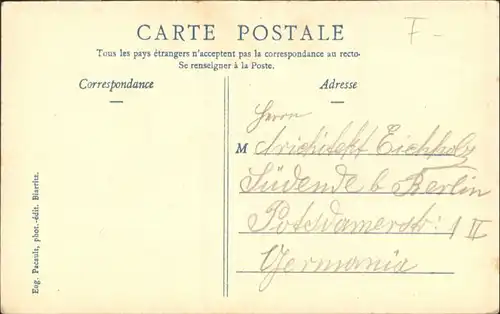 CARTE POSTALE
F-
Tous les pays étrangers n'acceptent pas la correspondance au recto-
Se renseigner à la Poste.
Correspondance
Adresse
Herrn
M Architekt Eichholz
Südende b Berlin
Potsdamerstr: 1 II
Germania
Eug. Pacault, phot.-édit. Biarritz.